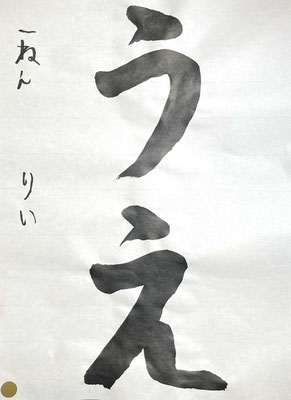 うえ
一ねん りい